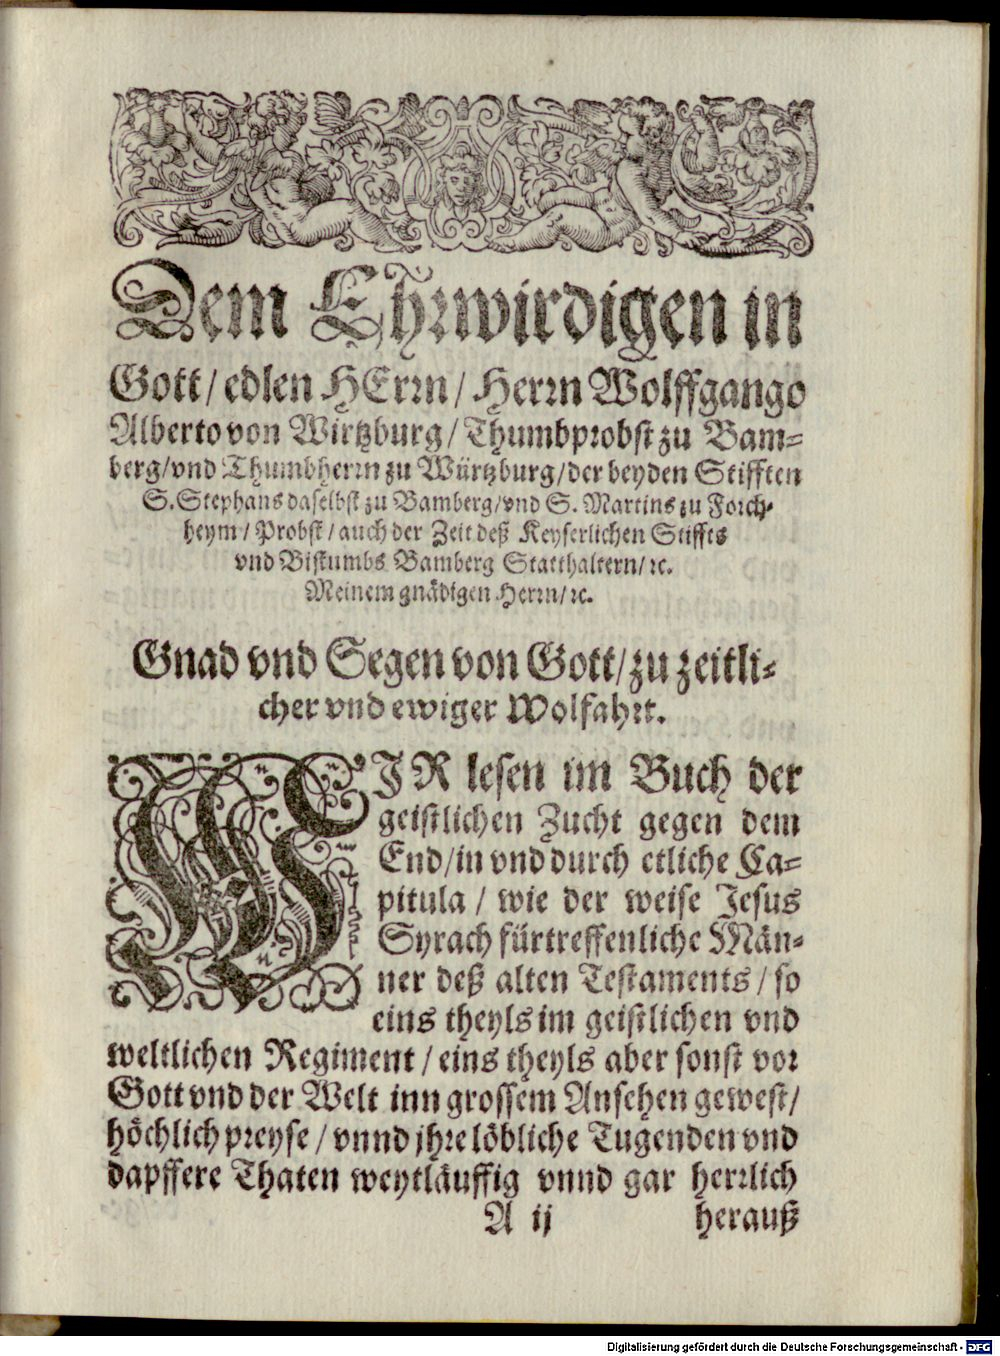 Dem Ehrwirdigen in
Gott/ edlen HErrn/ Herrn Wolffgango
Alberto von Wirtzburg/ Thumbprobst zu Bam-
berg/ vnd Thumbherrn zu Würtzburg/ der beyden Stifften
S. Stephans daselbst zu Bamberg/ vnd S. Martins zu Forch-
heym/ Probst/ auch der Zeit deß Keyserlichen Stiffts
vnd Bistumbs Bamberg Statthaltern/ ꝛc.
Meinem gnädigen Herrn/ ꝛc.
Gnad vnd Segen von Gott/ zu zeitli-
cher vnd ewiger Wolfahrt.
WJR lesen im Buch der
geistlichen Zucht gegen dem
End/ in vnd durch etliche Ca-
pitula/ wie der weise Jesus
Syrach fürtreffenliche Män-
ner deß alten Testaments/ so
eins theyls im geistlichen vnd
weltlichen Regiment/ eins theyls aber sonst vor
Gott vnd der Welt inn grossem Ansehen gewest/
höchlich preyse/ vnnd jhre löbliche Tugenden vnd
dapffere Thaten weytläuffig vnnd gar herrlich
A ij herauß
Digitalisierung gefördert durch die Deutsche Forschungsgemeinschaft - DFG